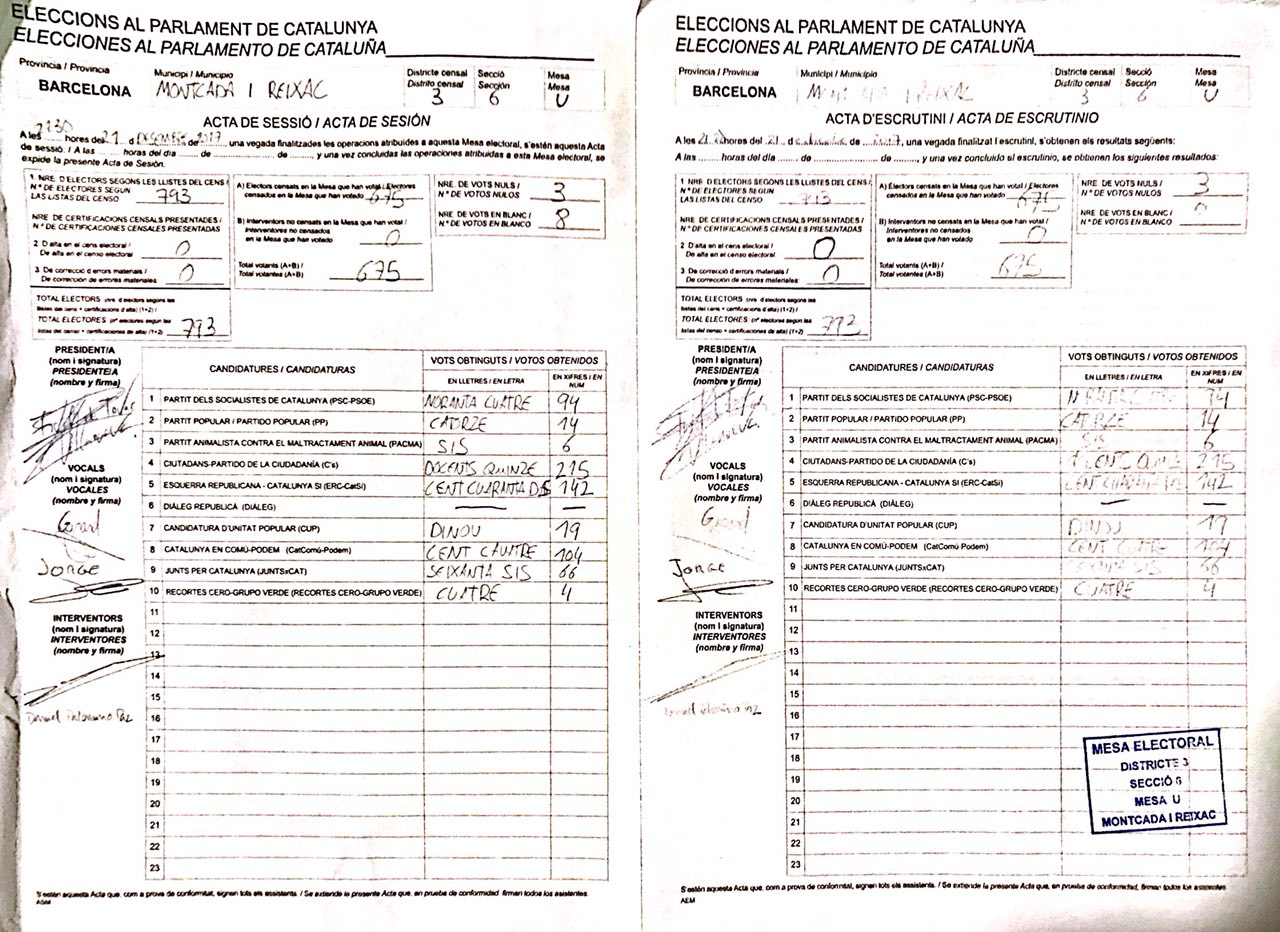 ELECCIONS AL PARLAMENT DE CATALUNYA
ELECCIONES AL PARLAMENTO DE CATALUÑA
Provincia / Provincia
BARCELONA
Municipi / Municipio
MONTCADA I REIXAC
Districte censal
Distrito censal
3
Secció
Sección
6
Mesa
Mesa
U
ACTA DE SESSIÓ / ACTA DE SESIÓN
A les hores del 21 d de 2017, una vegada finalitzades les operacions atribuides a aquesta Mesa electoral, s'estén aquesta Acta
de sessió. / A las ........ horas del día ....... de ............... de ........, y una vez concluidas las operaciones atribuidas a esta Mesa electoral, se
expide la presente Acta de Sesión.
1. NRE. D'ELECTORS SEGONS LES LLISTES DEL CENS /
N.º DE ELECTORES SEGÚN
LAS LISTAS DEL CENSO
793
NRE. DE CERTIFICACIONS CENSALS PRESENTADES /
N.º DE CERTIFICACIONES CENSALES PRESENTADAS
2 D'alta en el cens electoral /
De alta en el censo electoral
0
3. De correcció d'errors materials /
De corrección de errores materiales
0
TOTAL ELECTORS (nre. d'electors segons les
llistes del cens + certificacions d'alta) (1+2) /
TOTAL ELECTORES: (nº electores según las
listas del censo + certificaciones de alta) (1+2)
793
A) Electors censats en la Mesa que han votat / Electores
censados en la Mesa que han votado
675
B) Interventors no censats en la Mesa que han votat /
Interventores no censados
en la Mesa que han votado
0
Total votants (A+B) /
Total votantes (A+B)
675
NRE. DE VOTS NULS /
N.º DE VOTOS NULOS
3
NRE. DE VOTS EN BLANC /
N.º DE VOTOS EN BLANCO
8
PRESIDENT/A
(nom i signatura)
PRESIDENTE/A
(nombre y firma)
VOCALS
(nom i signatura)
VOCALES
(nombre y firma)
JORGE
INTERVENTORS
(nom i signatura)
INTERVENTORES
(nombre y firma)
CANDIDATURES / CANDIDATURAS
VOTS OBTINGUTS / VOTOS OBTENIDOS
EN LLETRES / EN LETRA
EN XIFRES / EN NUM
1 PARTIT DELS SOCIALISTES DE CATALUNYA (PSC-PSOE) NORANTA CUATRE 94
2 PARTIT POPULAR / PARTIDO POPULAR (PP) CATORZE 14
3 PARTIT ANIMALISTA CONTRA EL MALTRACTAMENT ANIMAL (PACMA) SIS 6
4 CIUTADANS-PARTIDO DE LA CIUDADANÍA (C's) DOCENTS QUINZE 215
5 ESQUERRA REPUBLICANA - CATALUNYA SI (ERC-CatSí) CENT CUARANTA DOS 142
6 DIÀLEG REPUBLICÀ (DIÀLEG) — —
7 CANDIDATURA D'UNITAT POPULAR (CUP) DINOU 19
8 CATALUNYA EN COMÚ-PODEM (CatComú-Podem) CENT CUATRE 104
9 JUNTS PER CATALUNYA (JUNTSxCAT) SEIXANTA SIS 66
10 RECORTES CERO-GRUPO VERDE (RECORTES CERO-GRUPO VERDE) CUATRE 4
11
12
13
14
15
16
17
18
19
20
21
22
23
S'estén aquesta Acta que, com a prova de conformitat, signen tots els assistents. / Se extiende la presente Acta que, en prueba de conformidad, firman todos los asistentes.
ELECCIONS AL PARLAMENT DE CATALUNYA
ELECCIONES AL PARLAMENTO DE CATALUÑA
Provincia / Provincia
BARCELONA
Municipi / Municipio
I REIXAC
Districte censal
Distrito censal
3
Secció
Sección
6
Mesa
Mesa
U
ACTA D'ESCRUTINI / ACTA DE ESCRUTINIO
A les hores del 21 d de, una vegada finalitzat l'escrutini, s'obtenen els resultats següents:
A las ........ horas del día ....... de ............... de ........, y una vez concluido el escrutinio, se obtienen los siguientes resultados:
1. NRE. D'ELECTORS SEGONS LES LLISTES DEL CENS /
N.º DE ELECTORES SEGÚN
LAS LISTAS DEL CENSO
793
NRE. DE CERTIFICACIONS CENSALS PRESENTADES /
N.º DE CERTIFICACIONES CENSALES PRESENTADAS
2 D'alta en el cens electoral /
De alta en el censo electoral
0
3. De correcció d'errors materials /
De corrección de errores materiales
0
TOTAL ELECTORS (nre. d'electors segons les
llistes del cens + certificacions d'alta) (1+2) /
TOTAL ELECTORES: (nº electores según las
listas del censo + certificaciones de alta) (1+2)
793
A) Electors censats en la Mesa que han votat / Electores
censados en la Mesa que han votado
675
B) Interventors no censats en la Mesa que han votat /
Interventores no censados
en la Mesa que han votado
0
Total votants (A+B) /
Total votantes (A+B)
675
NRE. DE VOTS NULS /
N.º DE VOTOS NULOS
3
NRE. DE VOTS EN BLANC /
N.º DE VOTOS EN BLANCO
PRESIDENT/A
(nom i signatura)
PRESIDENTE/A
(nombre y firma)
VOCALS
(nom i signatura)
VOCALES
(nombre y firma)
JORGE
INTERVENTORS
(nom i signatura)
INTERVENTORES
(nombre y firma)
CANDIDATURES / CANDIDATURAS
VOTS OBTINGUTS / VOTOS OBTENIDOS
EN LLETRES / EN LETRA
EN XIFRES / EN NUM
1 PARTIT DELS SOCIALISTES DE CATALUNYA (PSC-PSOE) 94
2 PARTIT POPULAR / PARTIDO POPULAR (PP) CATORZE 14
3 PARTIT ANIMALISTA CONTRA EL MALTRACTAMENT ANIMAL (PACMA) SIS 6
4 CIUTADANS-PARTIDO DE LA CIUDADANÍA (C's) 215
5 ESQUERRA REPUBLICANA - CATALUNYA SI (ERC-CatSí) CENT 142
6 DIÀLEG REPUBLICÀ (DIÀLEG) — —
7 CANDIDATURA D'UNITAT POPULAR (CUP) DINOU 19
8 CATALUNYA EN COMÚ-PODEM (CatComú-Podem) CENT CUATRE 104
9 JUNTS PER CATALUNYA (JUNTSxCAT) SIS 66
10 RECORTES CERO-GRUPO VERDE (RECORTES CERO-GRUPO VERDE) CUATRE 4
11
12
13
14
15
16
17
18
19
20
21
22
23
MESA ELECTORAL
DISTRICTE 3
SECCIÓ 6
MESA U
MONTCADA I REIXAC
S'estén aquesta Acta que, com a prova de conformitat, signen tots els assistents. / Se extiende la presente Acta que, en prueba de conformidad, firman todos los asistentes.
AEM